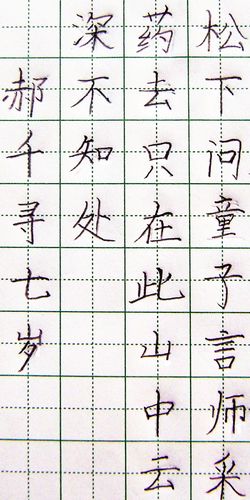 松下问童子言师采
药去只在此山中云
深不知处
郝千寻七岁